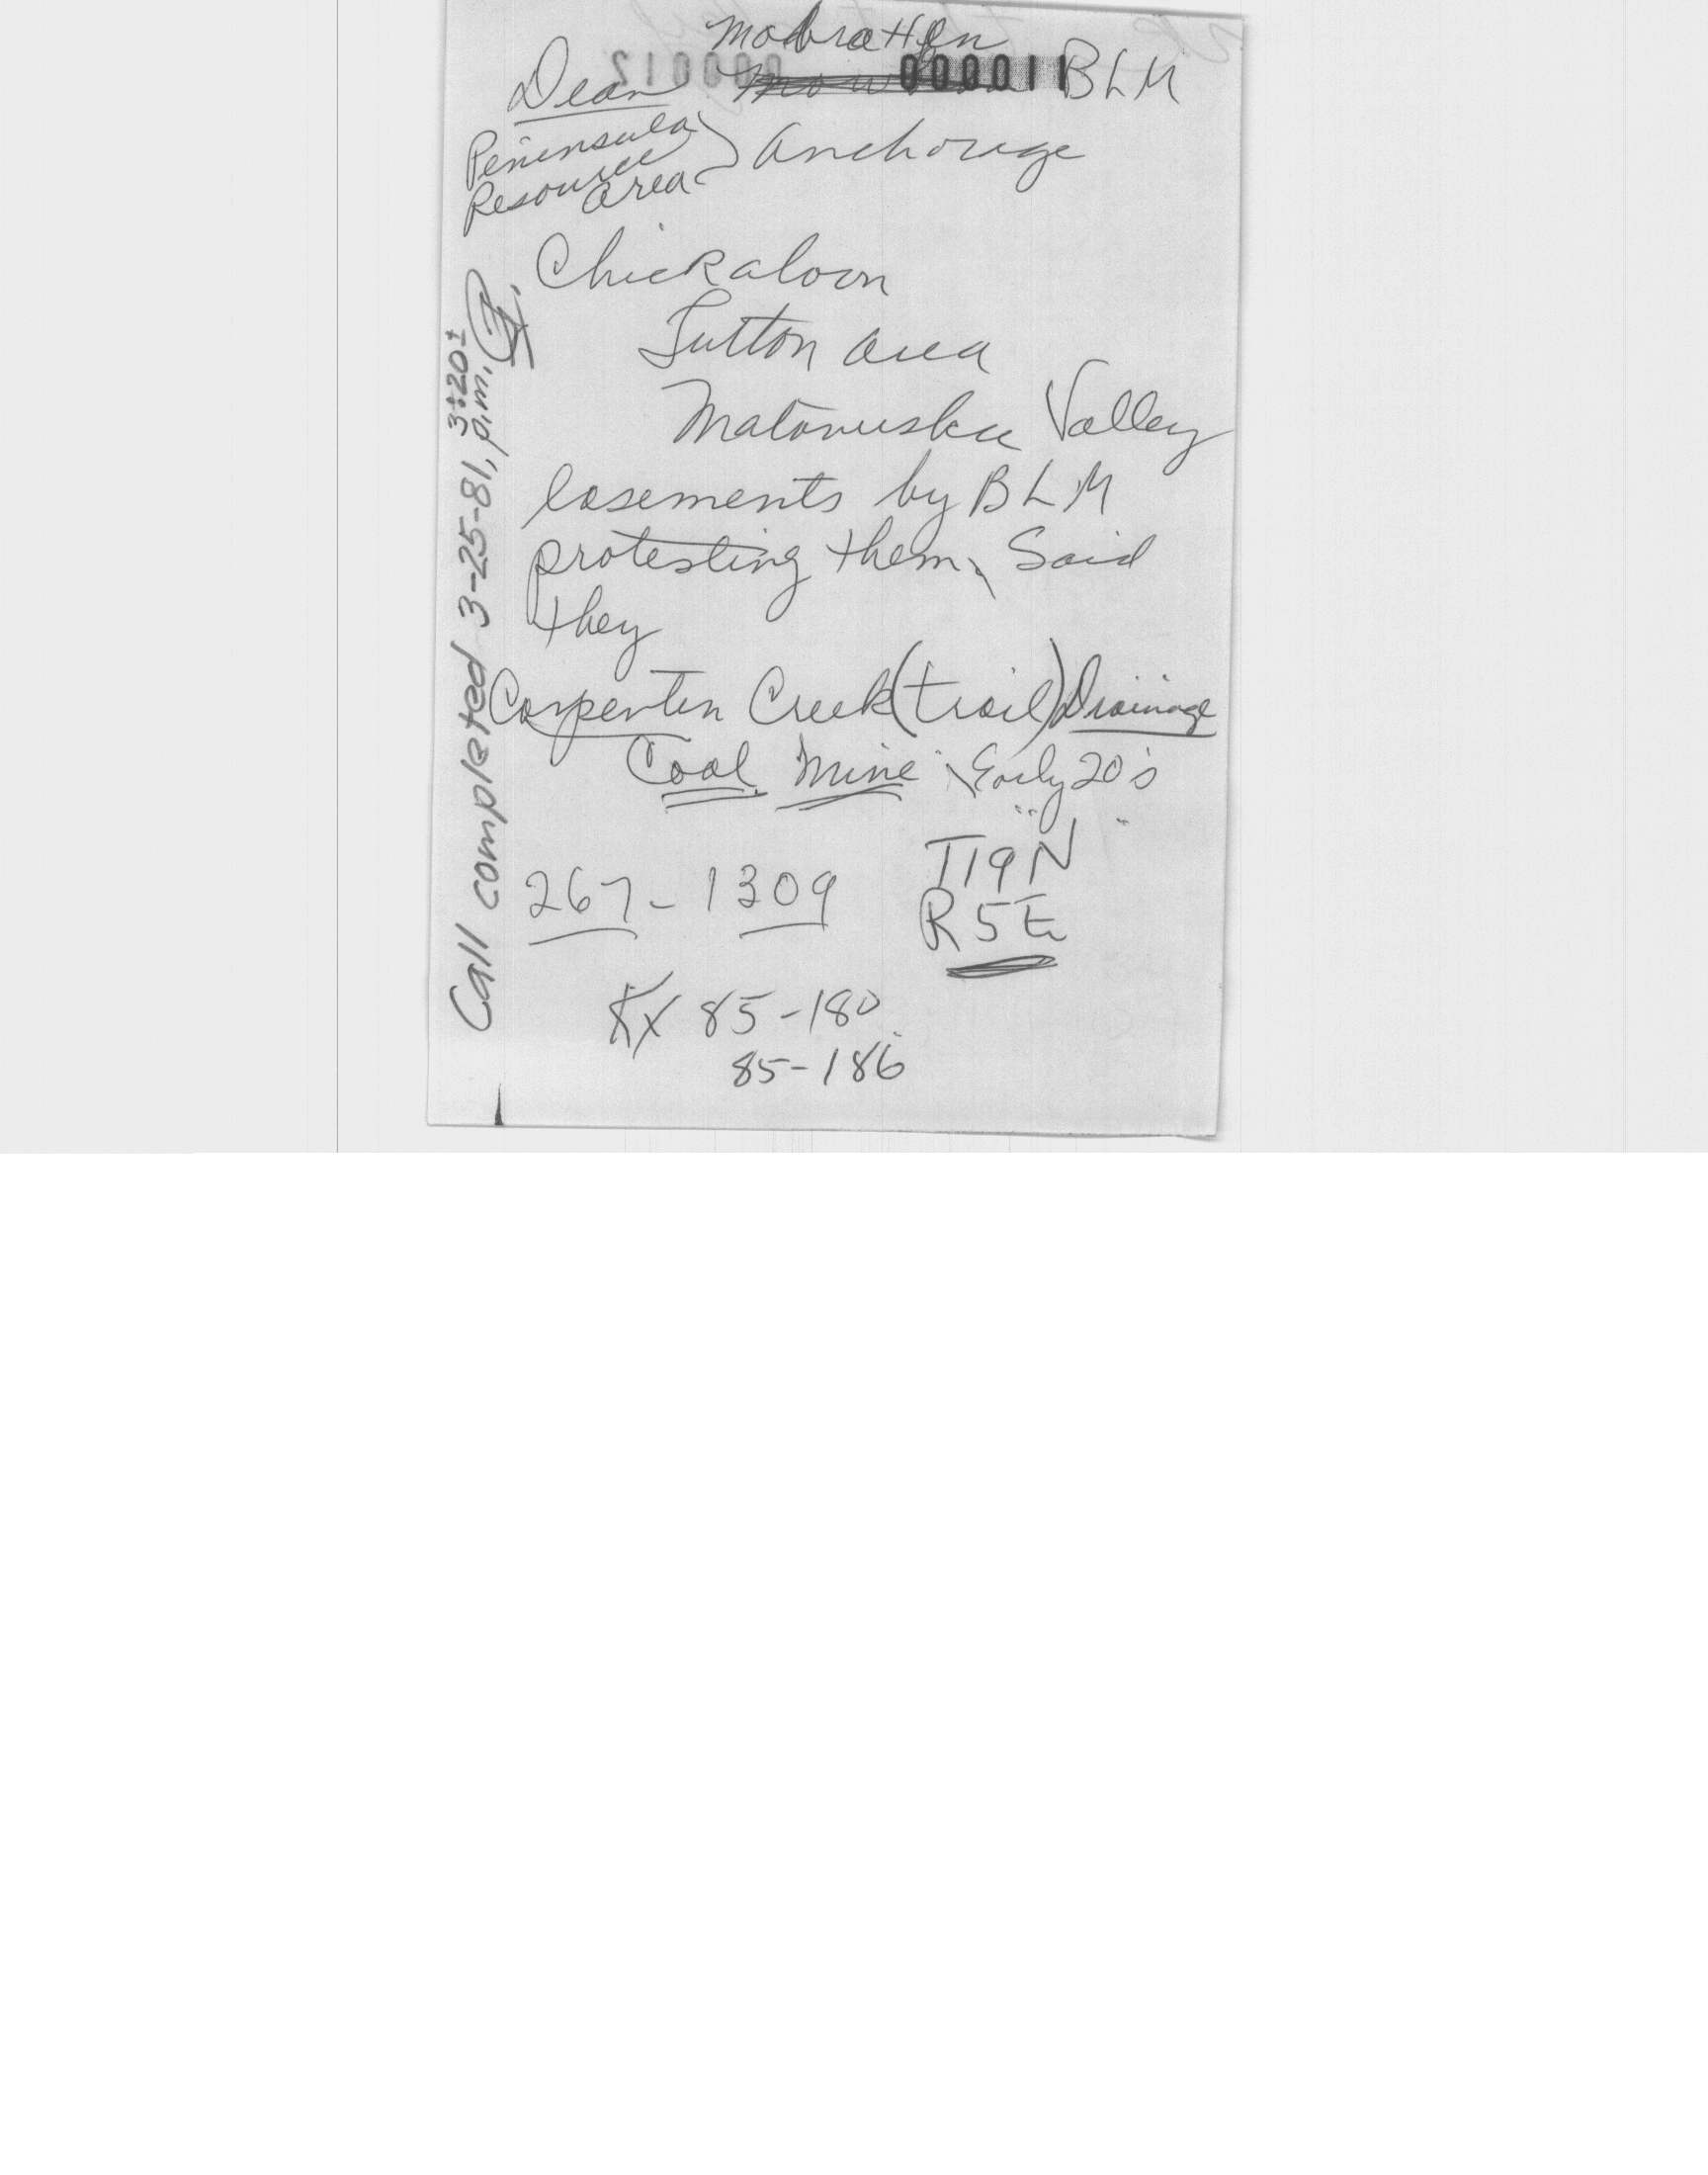 Mobratten
Dean 000011 BLM
Peninsula
Resource
Area
Anchorage
Chickaloon
Sutton area
Matanuska Valley
easements by BLM
protesting them, Said
they
Carpenter Creek (trail) Drainage
Coal Mine Early 20's
T19N
267-1309
R5E
85-180
85-186
Call completed 3-25-81, 3:20±
p.m.
000012